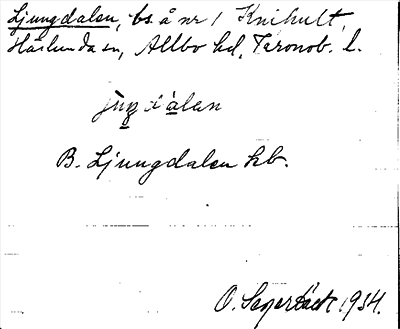 Ljungdalen, bs. å nr 1 Knihult,
Härlunda sn, Allbo hd, Kronob. l.
jùŋdálen
B. Ljungdalen kb.
O. Segerbäck 1934.